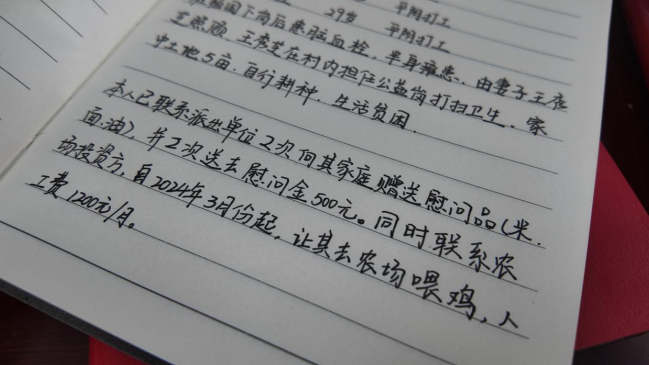 平阴打工
29岁 平阴打工
下岗后患脑血栓,半身瘫患,由妻子王
照顾,王 在村内担任公益岗打扫卫生,家
中土地5亩,自行耕种,生活贫困.
本人已联系派出单位2次向其家庭赠送慰问品(米、
面、油),并2次送去慰问金500元。同时联系农
场投资方,自2024年3月份起,让其去农场喂鸡,人
工费1200元/月。